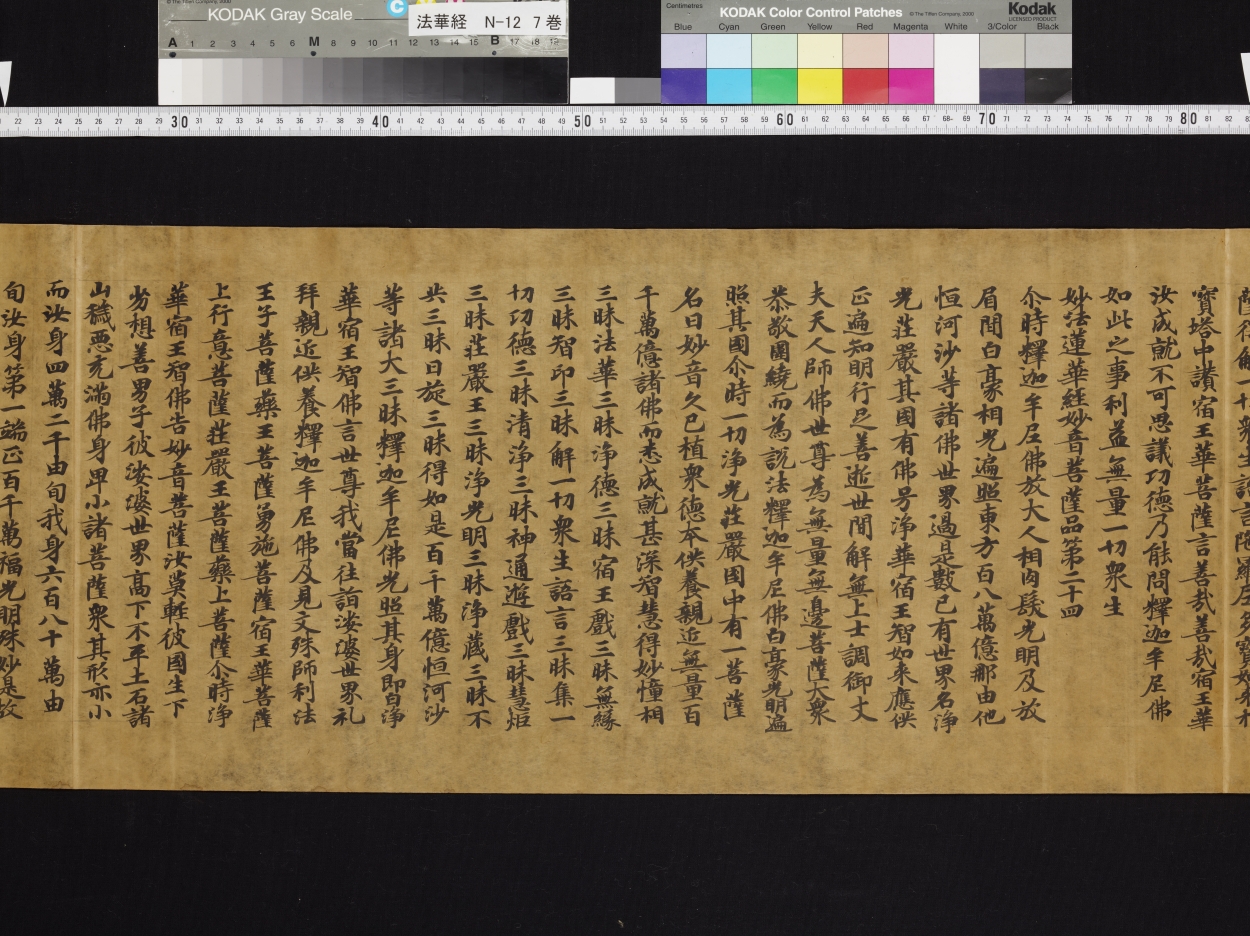 KODAK Gray Scale
法華経 N-12 7巻
C
A 1 2 3 4 5 6 M 8 9 10 11 12 13 14 15 B 17 18 19
Centimetres
KODAK Color Control Patches
© The Tiffen Company, 2000
Kodak
LICENSED PRODUCT
Blue Cyan Green Yellow Red Magenta White 3/Color Black
22 23 24 25 26 27 28 29 30 31 32 33 34 35 36 37 38 39 40 41 42 43 44 45 46 47 48 49 50 51 52 53 54 55 56 57 58 59 60 61 62 63 64 65 66 67 68 69 70 71 72 73 74 75 76 77 78 79 80 81 82
寶塔中讃宿王華菩薩言善哉善哉宿王華
汝成就不可思議功德乃能問釋迦牟尼佛
如此之事利益無量一切衆生
妙法蓮華経妙音菩薩品第二十四
尒時釋迦牟尼佛放大人相肉髻光明及放
眉間白豪相光遍照東方百八萬億那由他
恒河沙等諸佛世界過是數已有世界名淨
光莊嚴其國有佛号淨華宿王智如来應供
正遍知明行足善逝世間解無上士調御丈
夫天人師佛世尊為無量無邊菩薩大衆
恭敬圍繞而為說法釋迦牟尼佛白豪光明遍
照其國尒時一切淨光莊嚴國中有一菩薩
名曰妙音久已植衆德本供養親近無量百
千萬億諸佛而悉成就甚深智慧得妙憧相
三昧法華三昧淨德三昧宿王戲三昧無緣
三昧智印三昧解一切衆生語言三昧集一
切功德三昧清淨三昧神通遊戲三昧慧炬
三昧莊嚴王三昧淨光明三昧淨藏三昧不
共三昧日旋三昧得如是百千萬億恒河沙
等諸大三昧釋迦牟尼佛光照其身即白淨
華宿王智佛言世尊我當往詣娑婆世界礼
拜親近供養釋迦牟尼佛及見文殊師利法
王子菩薩藥王菩薩勇施菩薩宿王華菩薩
上行意菩薩莊嚴王菩薩藥上菩薩尒時淨
華宿王智佛告妙音菩薩汝莫輕彼國生下
劣想善男子彼娑婆世界高下不平土石諸
山穢惡充滿佛身卑小諸菩薩衆其形亦小
而汝身四萬二千由旬我身六百八十萬由
旬汝身第一端正百千萬福光明殊妙是故